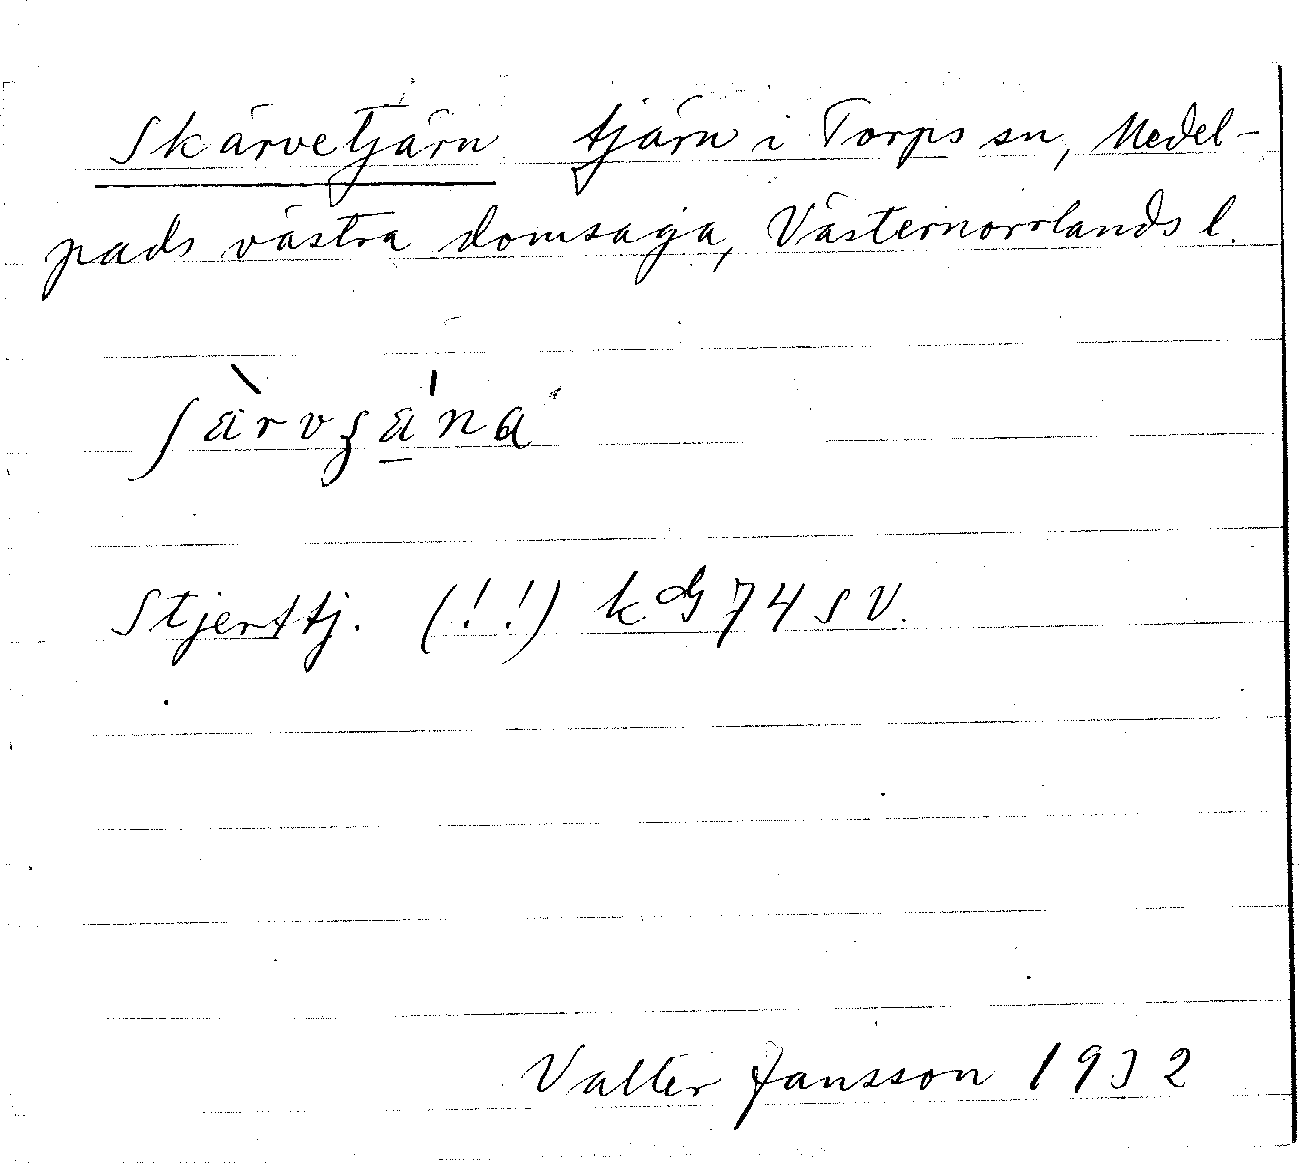 Skärvetjärn tjärn i Torps sn, Medel-
pads västra domsaga, Västernorrlands l.
ʃæ̀rvʒǽ̱na
Stjerttj. (!!) kG 74 SV.
Valter Jansson 1932